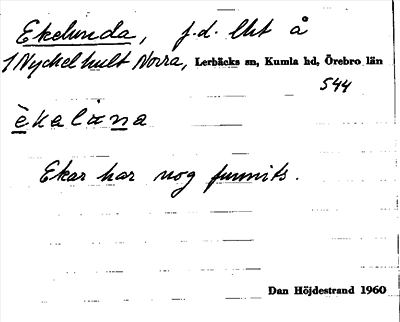 Ekelunda, f.d. lht å
1 Nyckelhult Norra, Lerbäcks sn, Kumla hd, Örebro län
544
èkalɩna
Ekar har nog funnits.
Dan Höjdestrand 1960